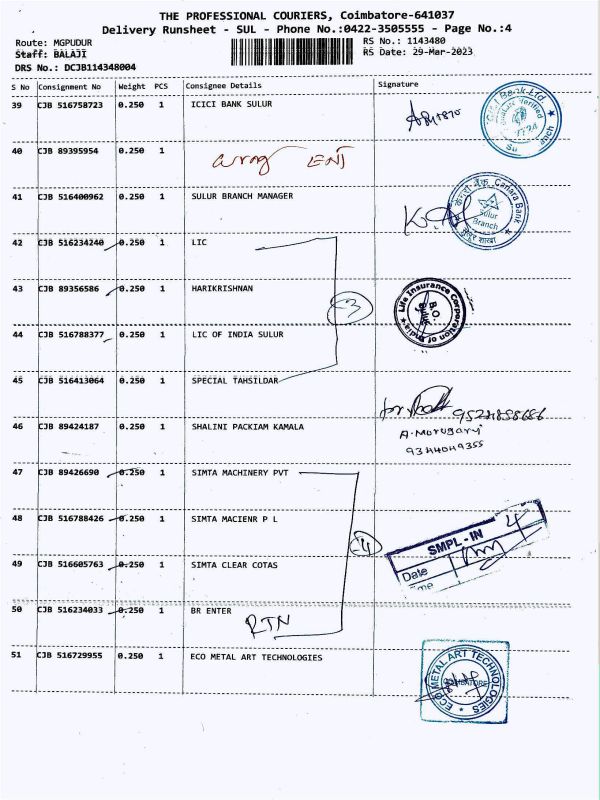 THE PROFESSIONAL COURIERS, Coimbatore-641037
Delivery Runsheet - SUL - Phone No.:0422-3505555 - Page No.:4
Route: MGPUDUR RS No.: 1143480
Staff: BALAJI RS Date: 29-Mar-2023
DRS No.: DCJB114348004
S No Consignment No Weight PCS Consignee Details Signature
39 CJB 516758723 0.250 1 ICICI BANK SULUR
40 CJB 89395954 0.250 1
wrong ENT
41 CJB 516400962 0.250 1 SULUR BRANCH MANAGER
केनरा बैंक Canara Bank
Sulur
Branch
सुलूर शाखा
42 CJB 516234240 0.250 1 LIC
43 CJB 89356586 0.250 1 HARIKRISHNAN
3
Life Insurance Corporation of India
B.O.
Sulur
44 CJB 516788377 0.250 1 LIC OF INDIA SULUR
45 CJB 516413064 0.250 1 SPECIAL TAHSILDAR
46 CJB 89424187 0.250 1 SHALINI PACKIAM KAMALA
A. Murugan
9344049355
47 CJB 89426690 0.250 1 SIMTA MACHINERY PVT
48 CJB 516788426 0.250 1 SIMTA MACIENR P L
4
SMPL-IN
Date
49 CJB 516605763 0.250 1 SIMTA CLEAR COTAS
50 CJB 516234033 0.250 1 BR ENTER
RTN
51 CJB 516729955 0.250 1 ECO METAL ART TECHNOLOGIES
ECO METAL ART TECHNOLOGIES